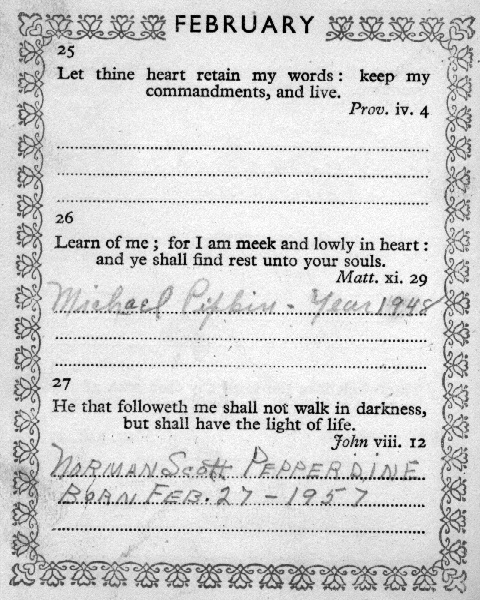 FEBRUARY
25
Let thine heart retain my words : keep my
commandments, and live.
Prov. iv. 4
26
Learn of me ; for I am meek and lowly in heart :
and ye shall find rest unto your souls.
Matt. xi. 29
Michael Pipkin - Year 1948
27
He that followeth me shall not walk in darkness,
but shall have the light of life.
John viii. 12
NORMAN Scott PEPPERDINE
BORN FEB. 27 - 1957